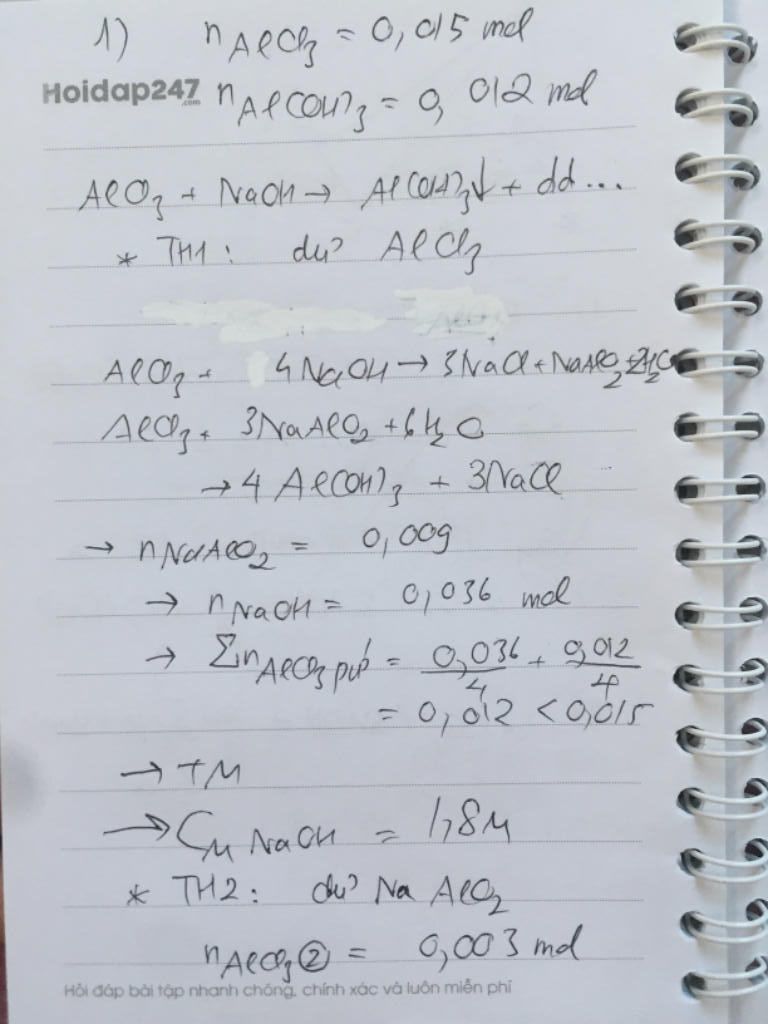 1) nAlCl3 = 0,015 mol
Hoidap247.com nAl(OH)3 = 0,012 mol
AlCl3 + NaOH → Al(OH)3↓ + dd...
* TH1: dư AlCl3
AlCl3 + 4NaOH → 3NaCl + NaAlO2 + 2H2O
AlCl3 + 3NaAlO2 + 6H2O
→ 4Al(OH)3 + 3NaCl
→ nNaAlO2 = 0,009
→ nNaOH = 0,036 mol
→ ΣnAlCl3 pứ = 0,036/4 + 0,012/4
= 0,012 < 0,015
→ TM
→ CM NaOH = 1,8M
* TH2: dư NaAlO2
nAlCl3② = 0,003 mol
Hỏi đáp bài tập nhanh chóng, chính xác và luôn miễn phí